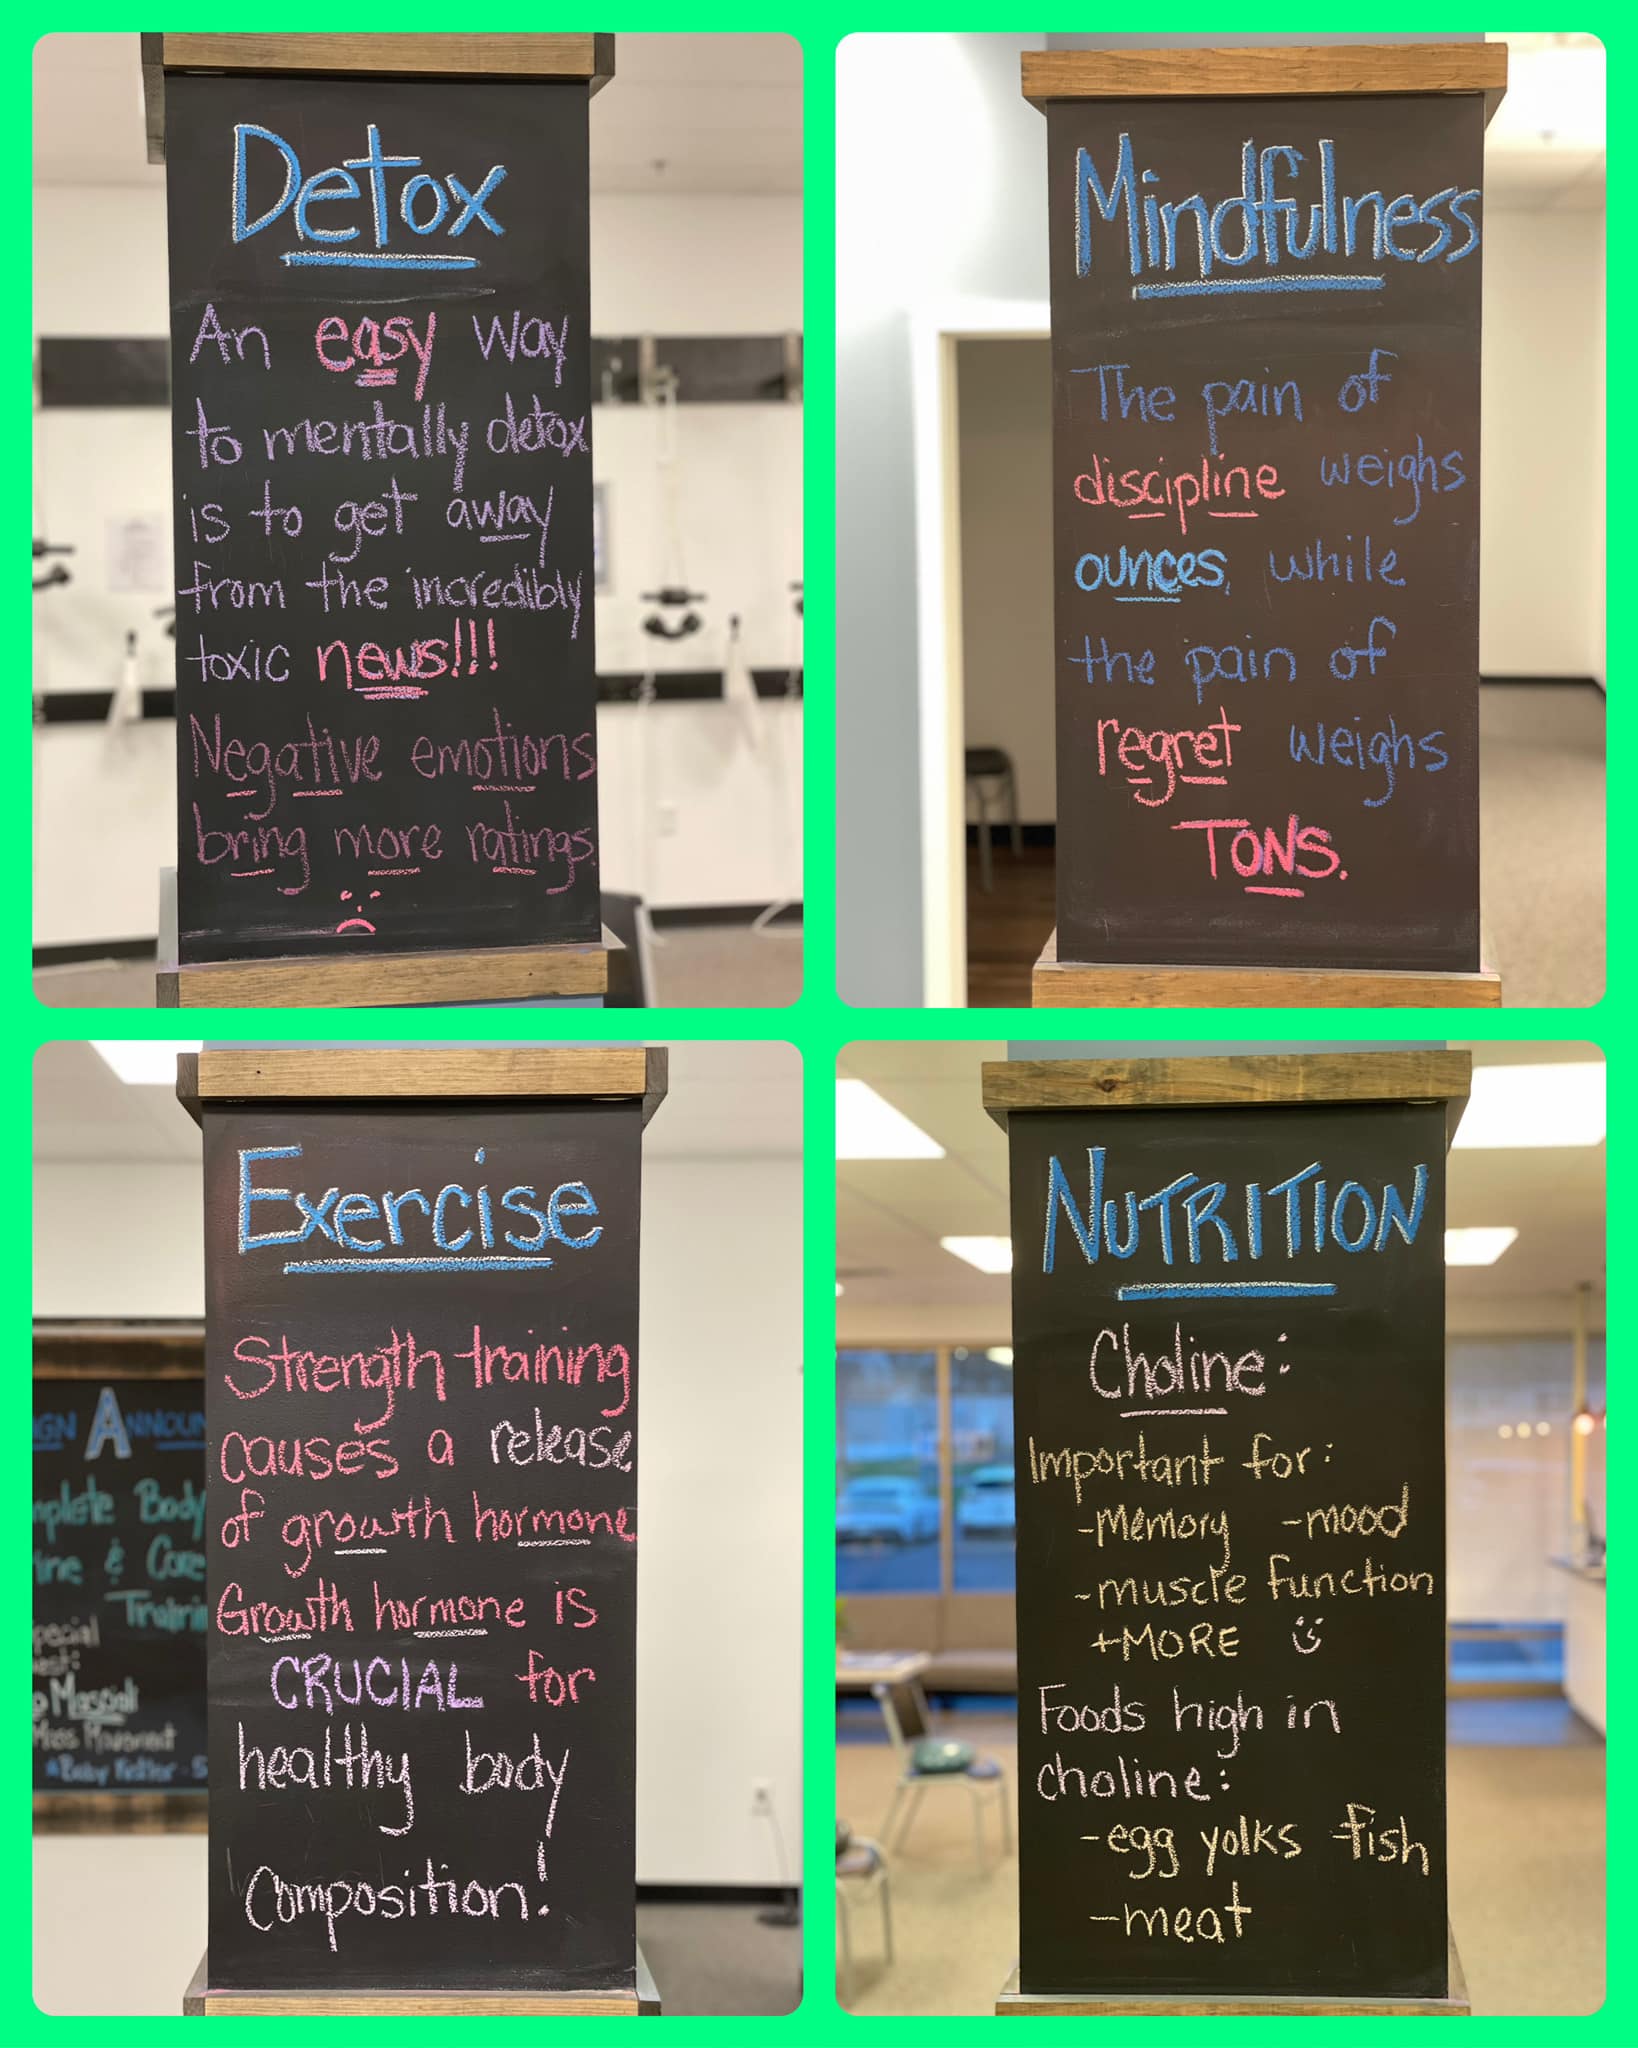 Detox
An easy way
to mentally detox
is to get away
from the incredibly
toxic news!!!
Negative emotions
bring more ratings.
Mindfulness
The pain of
discipline weighs
ounces, while
the pain of
regret weighs
TONS.
Exercise
Strength training
causes a release
of growth hormone
Growth hormone is
CRUCIAL for
healthy body
Composition!
NUTRITION
Choline:
Important for:
-Memory -mood
-muscle function
+MORE
Foods high in
choline:
-egg yolks -fish
-meat
Body
& Core